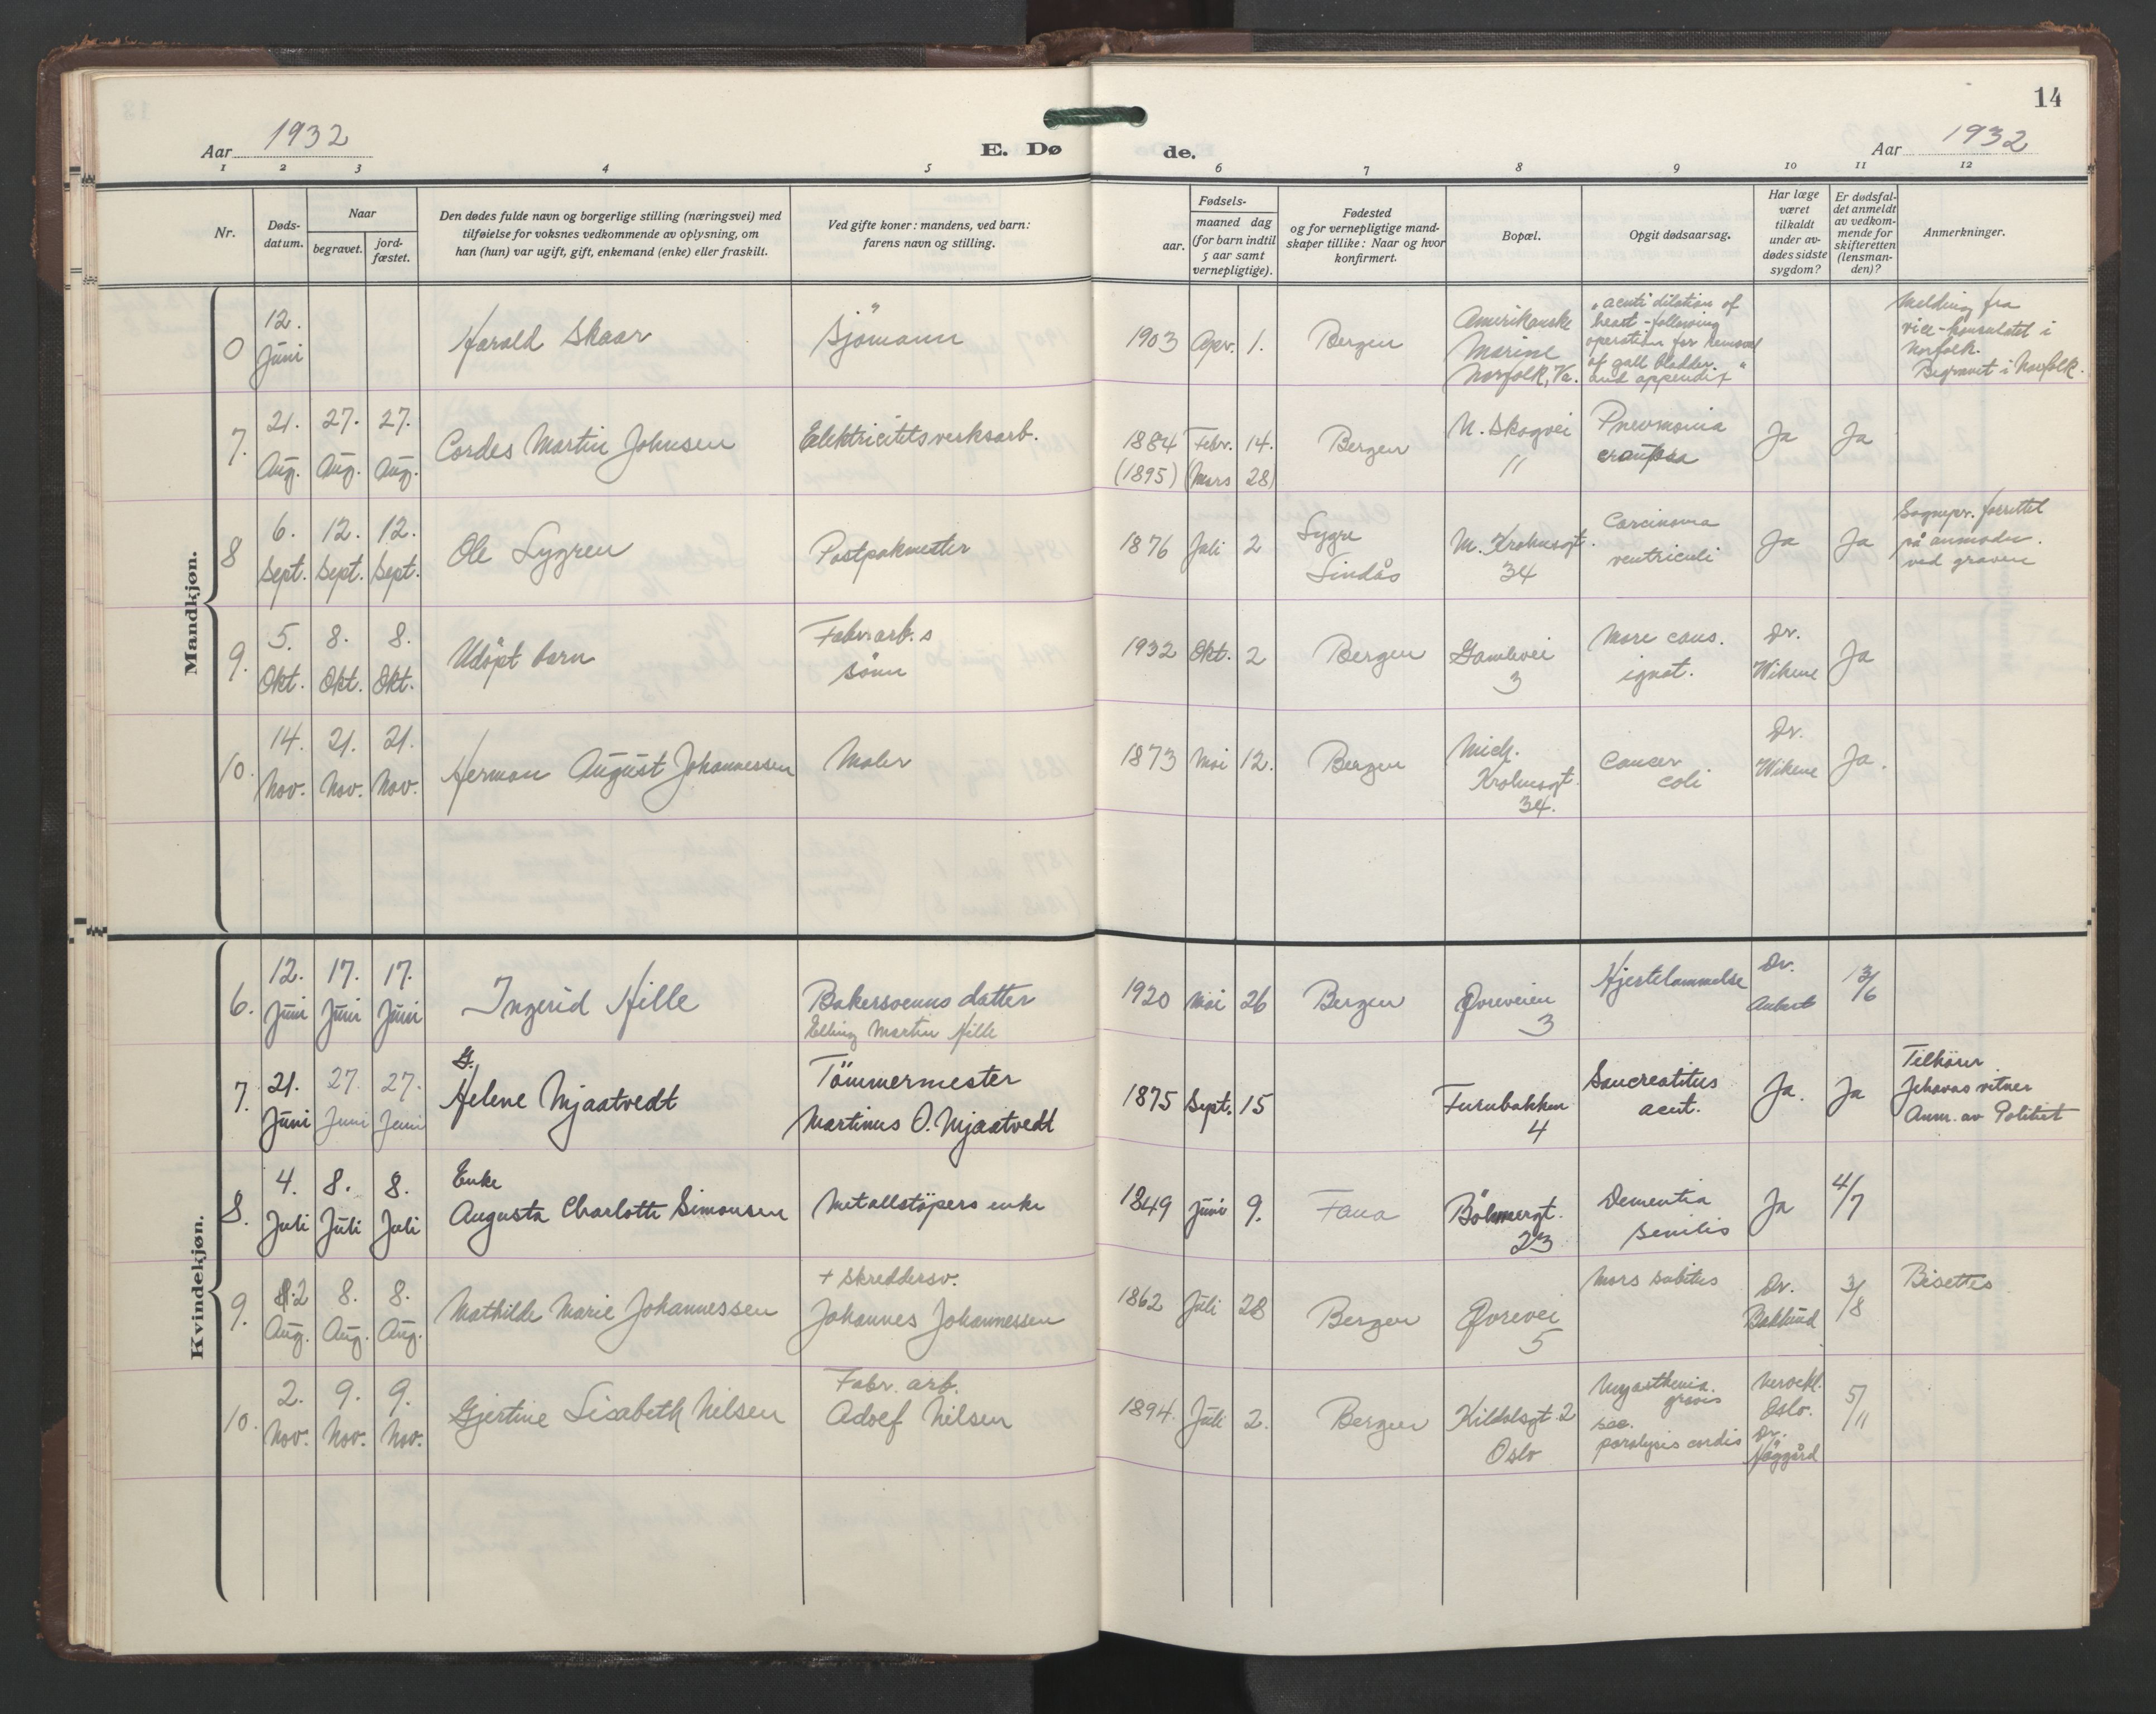 14
Aar 1932
E. Dø
de.
Aar 1932
1 2 3 4 5 6 7 8 9 10 11 12
Nr.
Døds-
datum.
Naar
begravet.
jord-
fæstet.
Den dødes fulde navn og borgerlige stilling (næringsvei) med
tilføielse for voksnes vedkommende av oplysning, om
han (hun) var ugift, gift, enkemand (enke) eller fraskilt.
Ved gifte koner: mandens, ved barn:
farens navn og stilling.
Fødsels-
aar.
maaned dag
(for barn indtil
5 aar samt
vernepligtige).
Fødested
og for vernepligtige mand-
skaper tillike: Naar og hvor
konfirmert.
Bopæl.
Opgit dødsaarsag.
Har læge
været
tilkaldt
under av-
dødes sidste
sygdom?
Er dødsfal-
det anmeldt
av vedkom-
mende for
skifteretten
(lensman-
den)?
Anmerkninger.
Mandkjøn.
0
12.
Juni
Harald Skaar
"
Sjömann
1903 Apr. 1.
Bergen
Amerikanske
Marine
Norfolk, Va.
"acuti dilation of
heart - following
operation for removal
of gall bladder
and appendix"
Melding fra
vice-konsulatet i
Norfolk.
Begravet i Norfolk.
7.
21. 27. 27.
Aug. Aug. Aug.
Cordes Martin Johnsen
Elektricitetsverksarb.
1884 Febr. 14.
(1895) (Mars 28)
Bergen
N. Skogvei
11
Pneumonia
crouposa
Ja
Ja
8
6. 12. 12.
Sept. Sept. Sept.
Ole Lygren
Postpakmester
1876 Juli 2
Lygre
Lindås
M. Krohnsgt.
34
Carcinoma
ventriculi
Ja
Ja
Sognepr. forrettet
på anmodn.
ved graven
9.
5. 8. 8.
Okt. Okt. Okt.
Udöpt barn
Fabr.arb.s
sönn
1932 Okt. 2
Bergen
Gamlevei
3
Mors caus.
ignot.
Dr.
Wikene
Ja
10.
14. 21. 21.
Nov. Nov. Nov.
Herman August Johannessen
Maler
1873 Mai 12.
Bergen
Mich.
Krohnsgt.
34.
Cancer
coli
Dr.
Wikene
Ja.
Kvindekjøn.
6.
12. 17. 17.
Juni Juni Juni
Ingerid Hille
Bakersvenns datter
Elling Martin Hille
1920 Mai 26
Bergen
Øvreveien
3
Hjertelammelse
Dr.
Aubert
13/6
7.
21. 27. 27.
Juni Juni Juni
G.
Helene Mjaatvedt
Tömmermester
Martinus O. Mjaatvedt
1875 Sept. 15
Furubakken
4
acut.
Ja.
Ja
Tilhører
Jehovas vitner
Anm. av Politiet
8.
4. 8. 8.
Juli Juli Juli
Enke
Augusta Charlotte Simonsen
Metallstöpers enke
1849 Juni 9.
Fana
Böhmergt.
23
Dementia
senilis
Ja
4/7
9.
2 8. 8.
Aug. Aug. Aug.
Mathilde Marie Johannessen
+ Skreddersv.
Johannes Johannessen
1862 Juli 28
Bergen
Øvrevei
5
Mors subitus
Dr.
Baklund
3/8
Bisettes
10.
2. 9. 9.
Nov. Nov. Nov.
Gjertine Lisabeth Nilsen
Fabr. arb.
Adolf Nilsen
1894 Juli 2.
Bergen
Kildalsgt. 2
Oslo
Myasthenia
gravis
paralysis cordis
Oslo.
Dr.
5/11